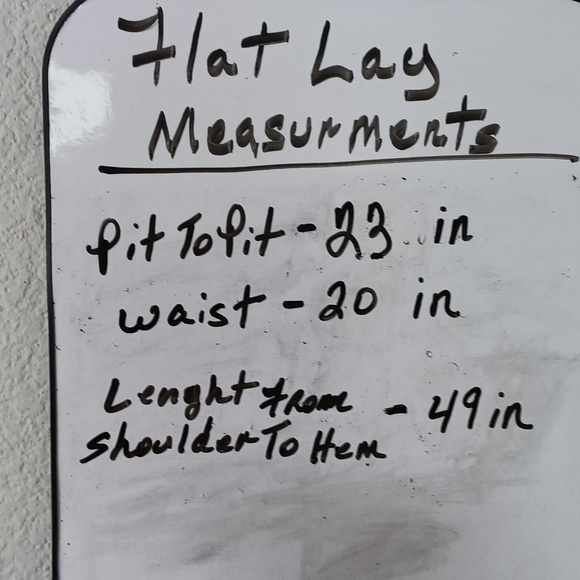 Flat Lay
Measurments
Pit To Pit - 23 in
waist - 20 in
Lenght From
shoulder To Hem - 49 in